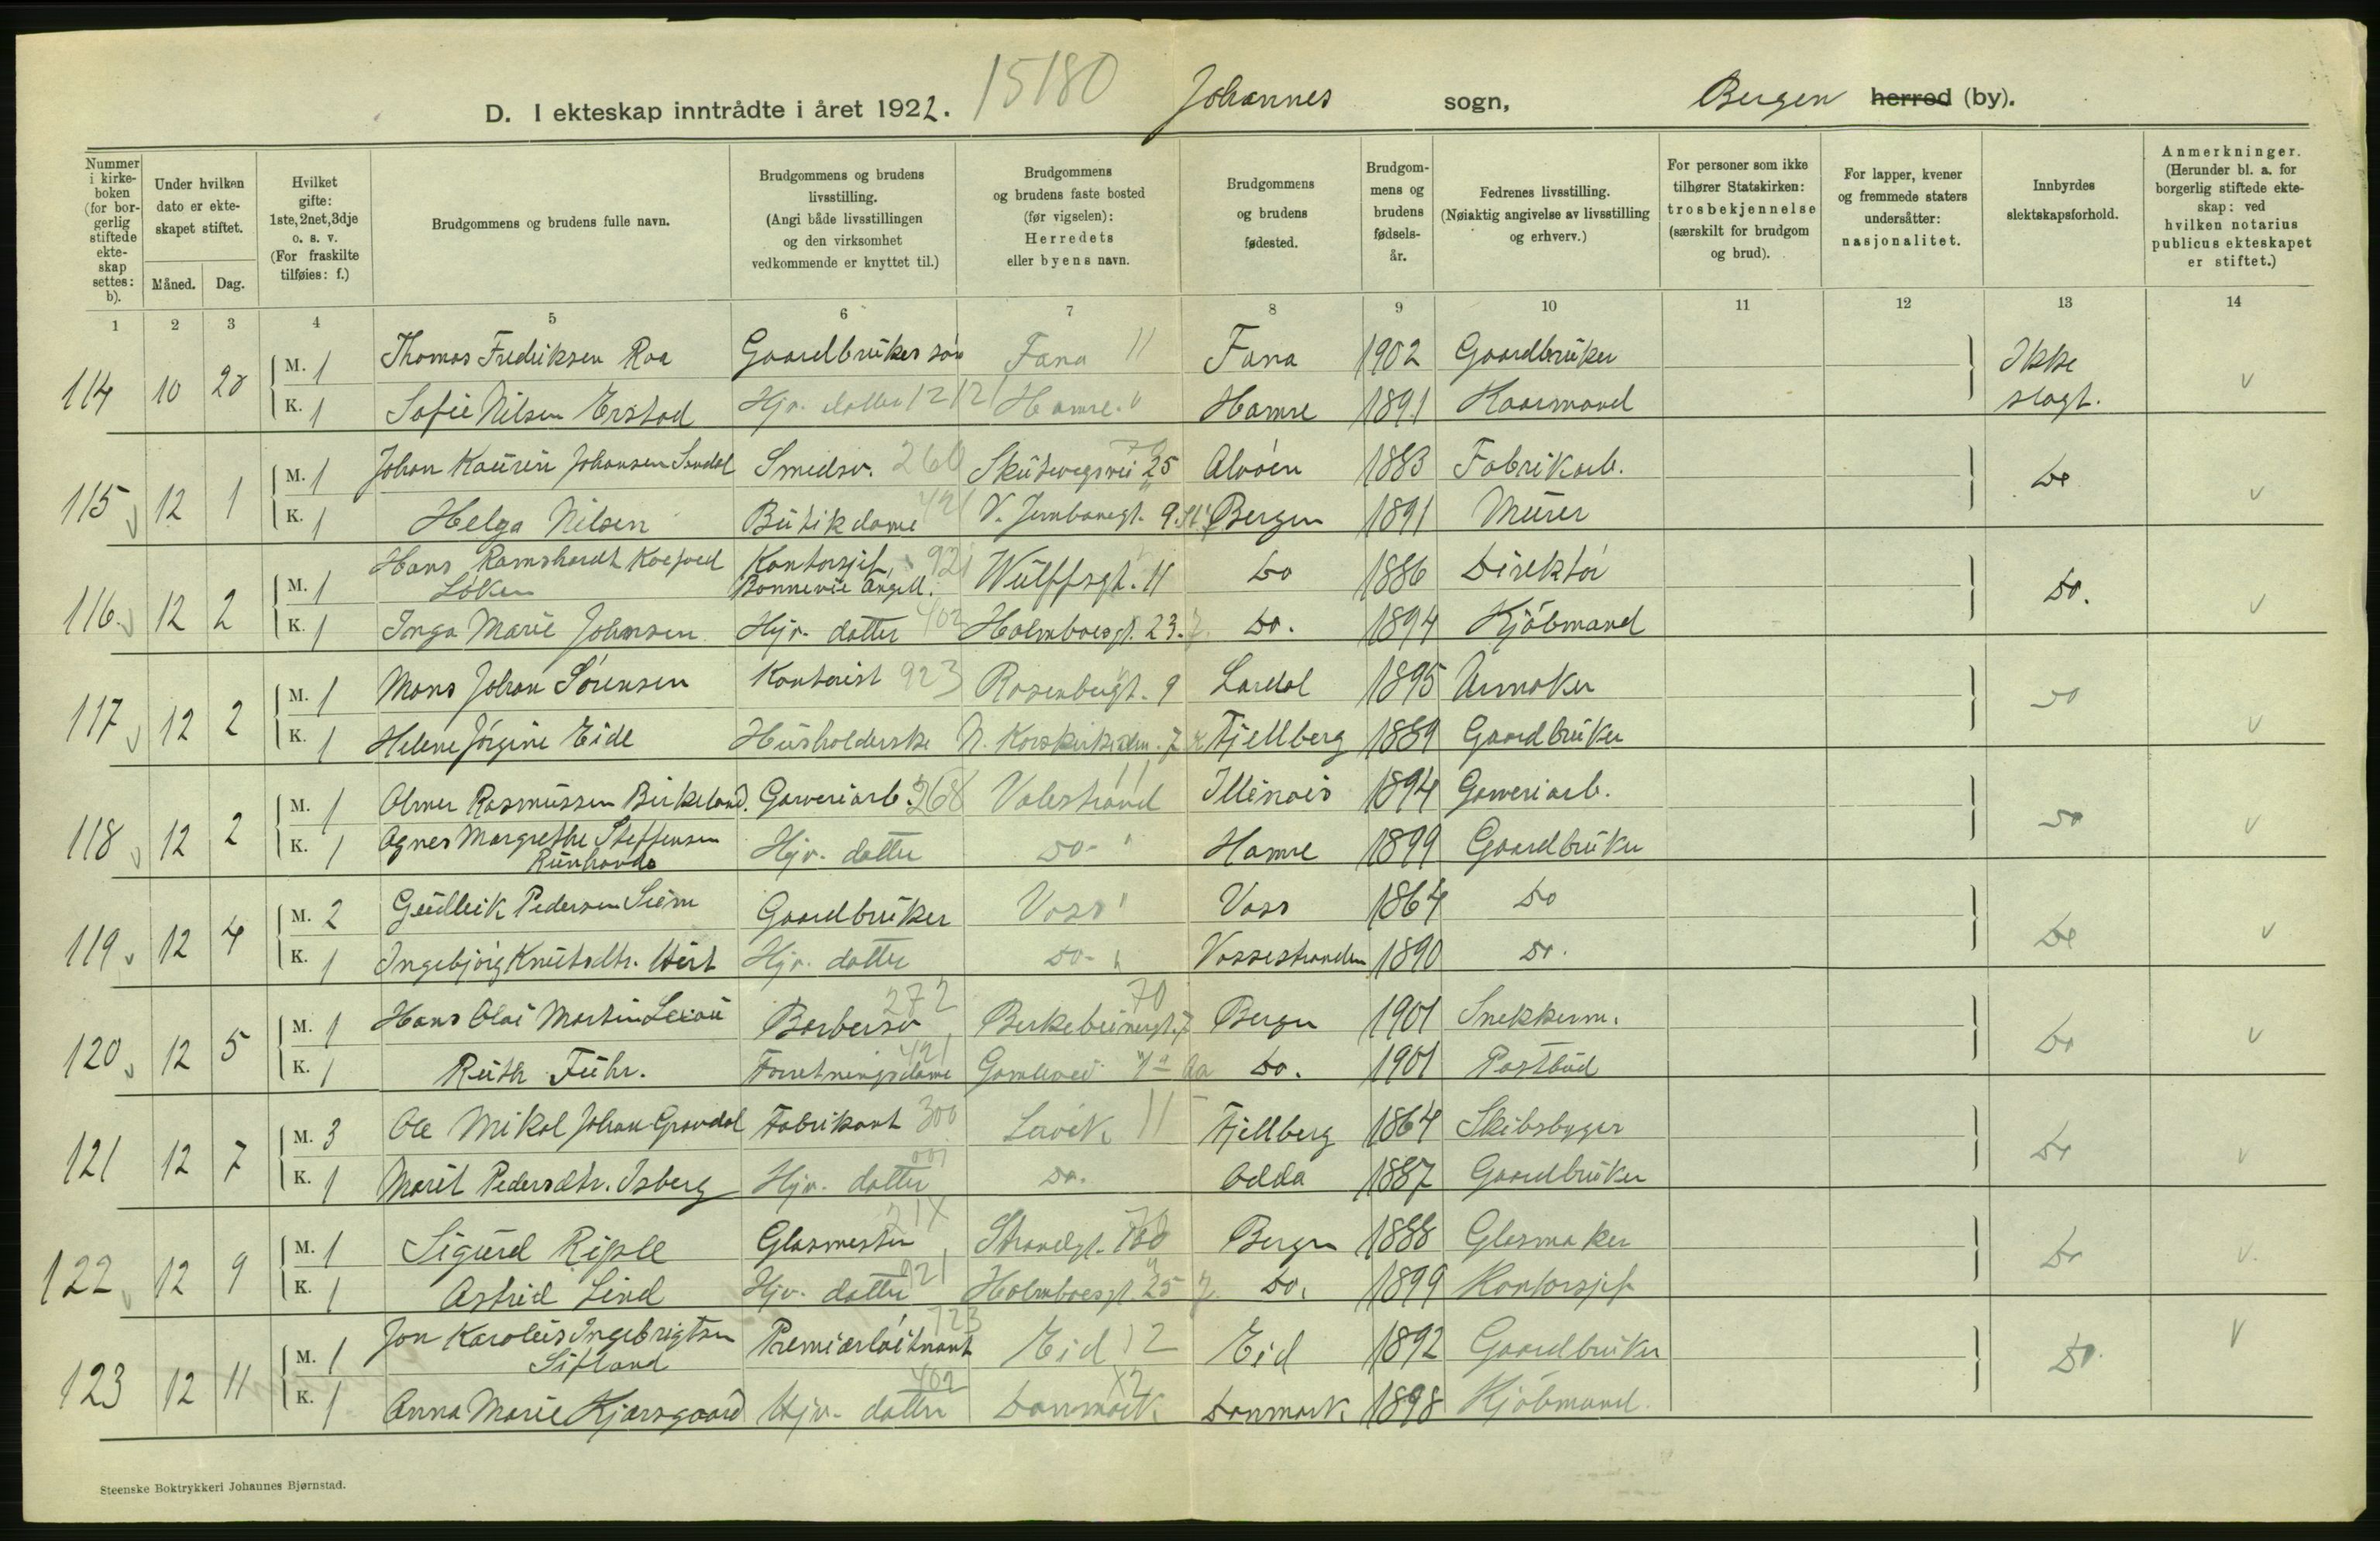 D. I ekteskap inntrådte i året 1922. 15180 Johannes sogn, Bergen herred (by).
Nummer i kirke-boken (for bor-gerlig stiftede ekte-skap settes: b).
Under hvilken dato er ekte-skapet stiftet.
Måned. Dag.
Hvilket gifte: 1ste, 2net, 3dje o. s. v. (For fraskilte tilføies: f.)
Brudgommens og brudens fulle navn.
Brudgommens og brudens livsstilling. (Angi både livsstillingen og den virksomhet vedkommende er knyttet til.)
Brudgommens og brudens faste bosted (før vigselen): Herredets eller byens navn.
Brudgommens og brudens fødested.
Brudgom-mens og brudens fødsels-år.
Fedrenes livsstilling. (Nøiaktig angivelse av livsstilling og erhverv.)
For personer som ikke tilhører Statskirken: trosbekjennelse (særskilt for brudgom og brud).
For lapper, kvener og fremmede staters undersåtter: nasjonalitet.
Innbyrdes slektskapsforhold.
Anmerkninger. (Herunder bl. a. for borgerlig stiftede ekte-skap: ved hvilken notarius publicus ekteskapet er stiftet.)
1 2 3 4 5 6 7 8 9 10 11 12 13 14
114 10 28 M. 1 Thomas Fredriksen Roa Gaardbruker søn Fana 11 Fana 1902 Gaardbruker Ikke slogt. v
K. 1 Sofie Nilsen Erstad Hjv. datter 1212 Hamre " Hamre 1891 Kaarmand
115 v 12 1 M. 1 Johan Kaurin Johansen Sendal Smedsv. 260 Skutevegsvei 25 Alvöen 1883 Fabrikarb. Do v
K. 1 Helga Nilsen Butikdame 421 V. Jernbanegt. 9 Bergen 1891 Murer
116 v 12 2 M. 1 Hans Ramshardt Koefoed Löken Kontorsjef, Bonnevie Angell. 921 Wulffsgt. 11 Do 1886 Direktör Do. v
K. 1 Inga Marie Johnsen Hjv. datter 402 Holmboesgt. 23 Do. 1894 Kjöbmand
117 v 12 2 M. 1 Mons Johan Sörensen Kontorist 923 Rosenbergt. 9 Lardal 1895 Urmaker Do v
K. 1 Helene Jörgine Eide Husholderske N. Korskirkealm. 7 Fjellberg 1889 Gaardbruker
118 v 12 2 M. 1 Olmer Rasmussen Birkeland. Garveriarb. 268 Valestrand Illinois 1894 Garveriarb. Do v
K. 1 Agnes Margrethe Steffensen Runhovda Hjv. datter Do - " Hamre 1899 Gaardbruker
119 v 12 4 M. 2 Gudleik Pedersen Gaardbruker Voss " Voss 1864 Do Do v
K. 1 Ingebjörg Knutsdtr. Hjv. datter Do - " Vossestranden 1890 Do.
120 v 12 5 M. 1 Hans Olai Martin Lexau Barbersv 272 Birkebeinergt. 7 70 Bergen 1901 Snekkerm. Do v
K. 1 Ruth Führ. Forretningsdame 421 Gamlevei Do. 1901 Postbud
121 12 7 M. 3 Ole Mikal Johan Grovdal Fabrikant 300 Lavik 11 Fjellberg 1864 Skibsbyger Do v
K. 1 Marit Pedersdtr. Isberg Hjv. datter Do. Odda 1887 Gaardbruker
122 v 12 9 M. 1 Sigurd Riple Glasmester 21X Strandgt. Bergen 1888 Glasmaker Do v.
K. 1 Astrid Lind Hjv. datter 921 Holmboesgt. 25 Do. 1899 Kontorsjef
123 12 11 M. 1 Jon Karolius Ingebrigtsen Sifland Premierlöitnant 723 Eid 12 Eid 1892 Gaardbruker Do. v
K. 1 Anna Marie Kjærsgaard Hjv. datter 402 Danmark X2 Danmark 1898 Kjöbmand.
Steenske Boktrykkeri Johannes Bjørnstad.